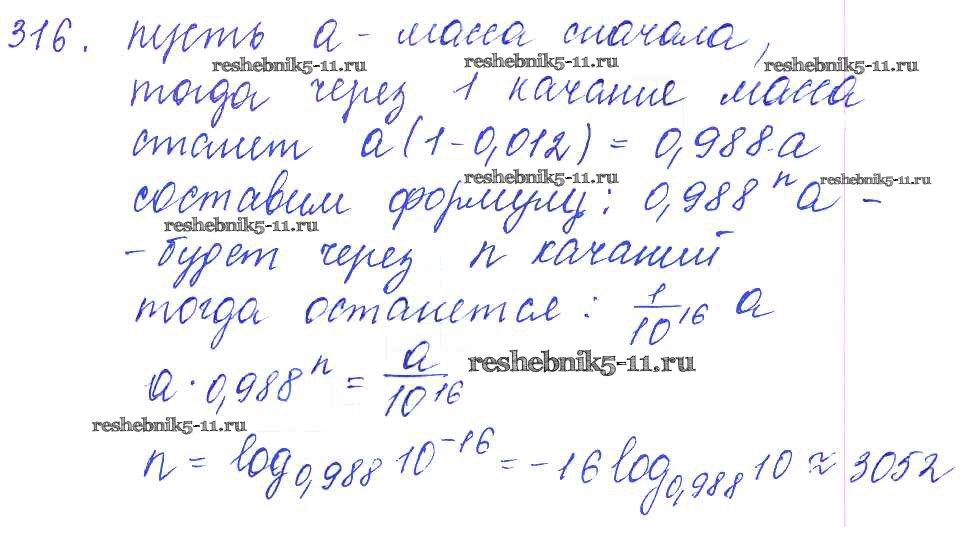 316. пусть a - масса сначала,
reshebnik5-11.ru reshebnik5-11.ru reshebnik5-11.ru
тогда через 1 качание масса
станет a(1-0,012) = 0,988·a
reshebnik5-11.ru reshebnik5-11.ru
составим формулу: 0,988ⁿa -
reshebnik5-11.ru
- будет через n качаний
тогда останется: 1/10¹⁶ a
reshebnik5-11.ru
a · 0,988ⁿ = a/10¹⁶
reshebnik5-11.ru
n = log₀,₉₈₈ 10⁻¹⁶ = -16 log₀,₉₈₈ 10 ≈ 3052